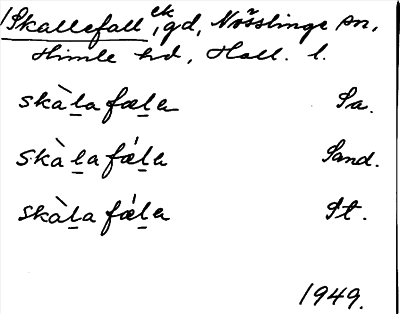 Skallefall ek, gd, Nösslinge sn,
Himle hd, Hall. l.
skàḻa fæḻa Sa.
skàḻa fǽḻa Sand.
skàḻa fǽḻa St.
1949.